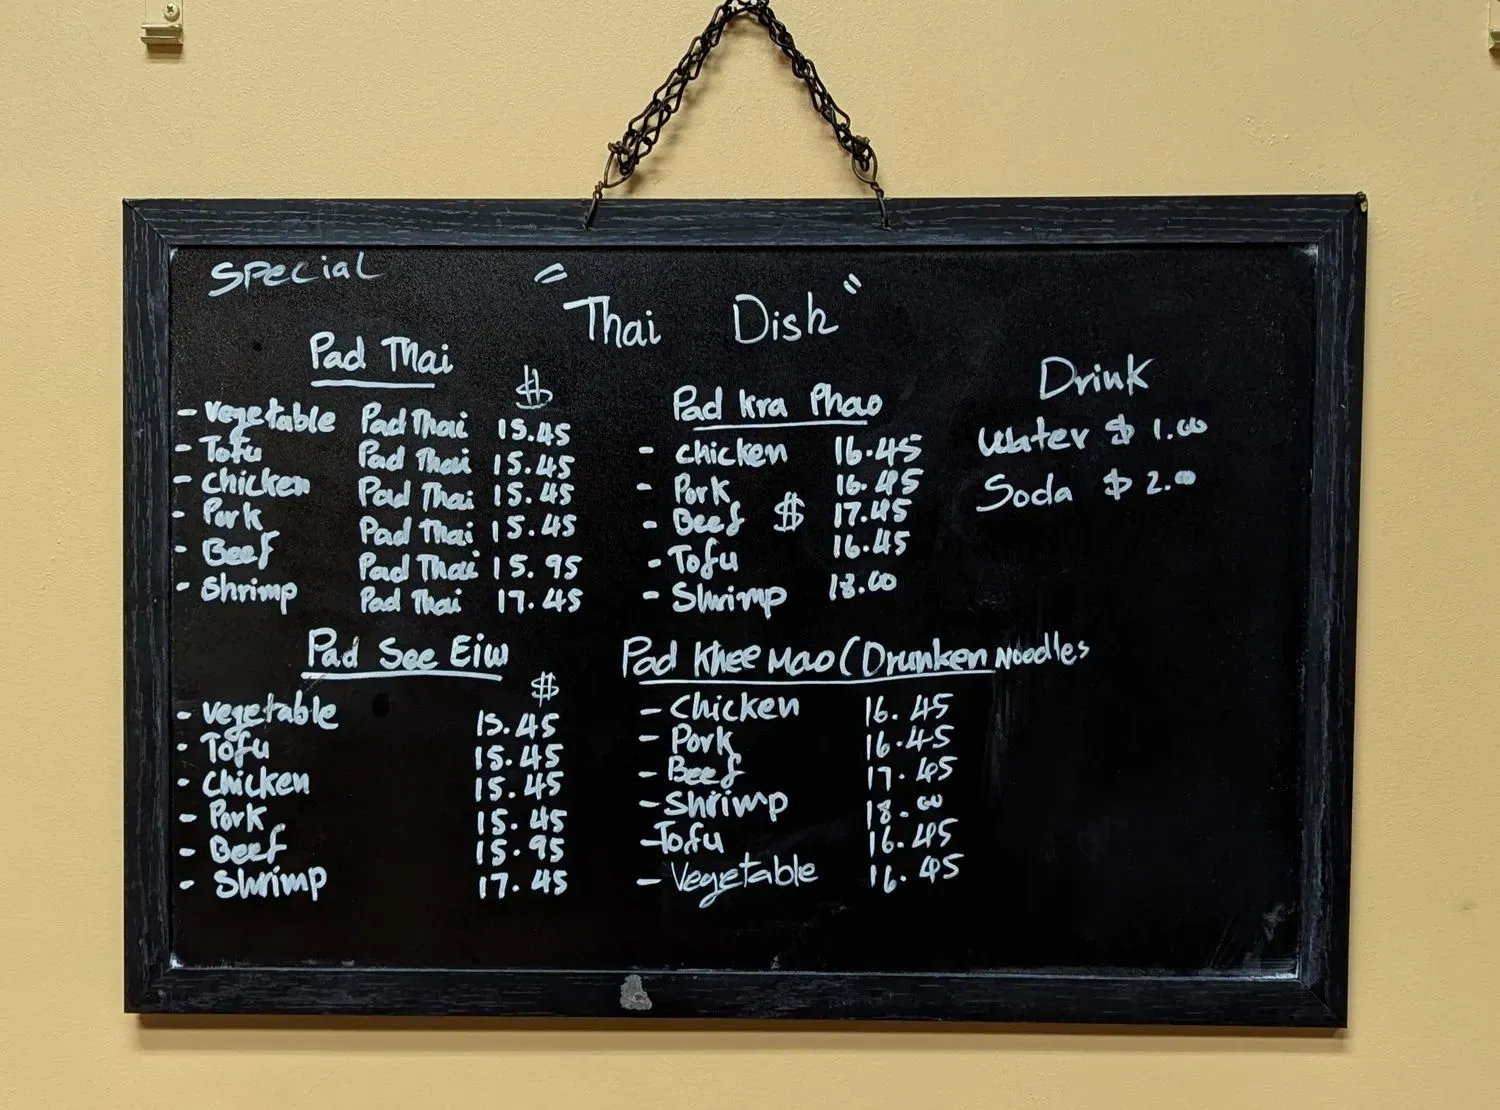 Special
"Thai Dish"
Pad Thai
$
- vegetable Pad Thai 15.45
- Tofu Pad Thai 15.45
- chicken Pad Thai 15.45
- Pork Pad Thai 15.45
- Beef Pad Thai 15.95
- Shrimp Pad Thai 17.45
Pad See Eiw
$
- vegetable 15.45
- Tofu 15.45
- chicken 15.45
- Pork 15.45
- Beef 15.95
- Shrimp 17.45
Pad Kra Phao
- chicken 16.45
- Pork 16.45
- Beef $ 17.45
- Tofu 16.45
- Shrimp 18.00
Pad Khee Mao (Drunken Noodles
- Chicken 16.45
- Pork 16.45
- Beef 17.45
- Shrimp 18.00
- Tofu 16.45
- Vegetable 16.45
Drink
Water $ 1.00
Soda $ 2.00